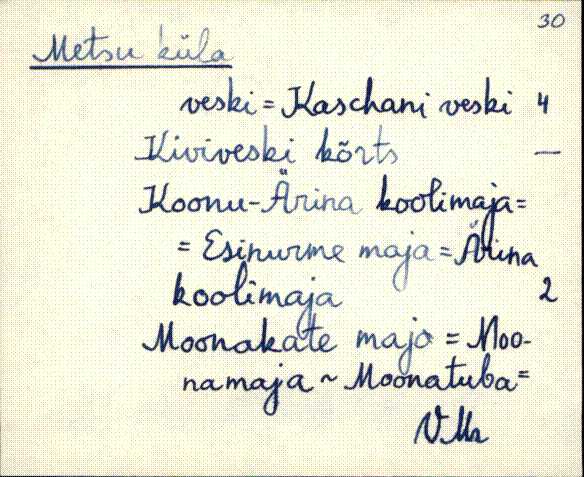 30
Metsu küla
veski = Kaschani veski 4
Kiviveski kõrts —
Koonu-Ärina koolimaja=
= Esinurme maja = Ärina
koolimaja 2
Moonakate maja = Moo-
namaja ~ Moonatuba=
VMr